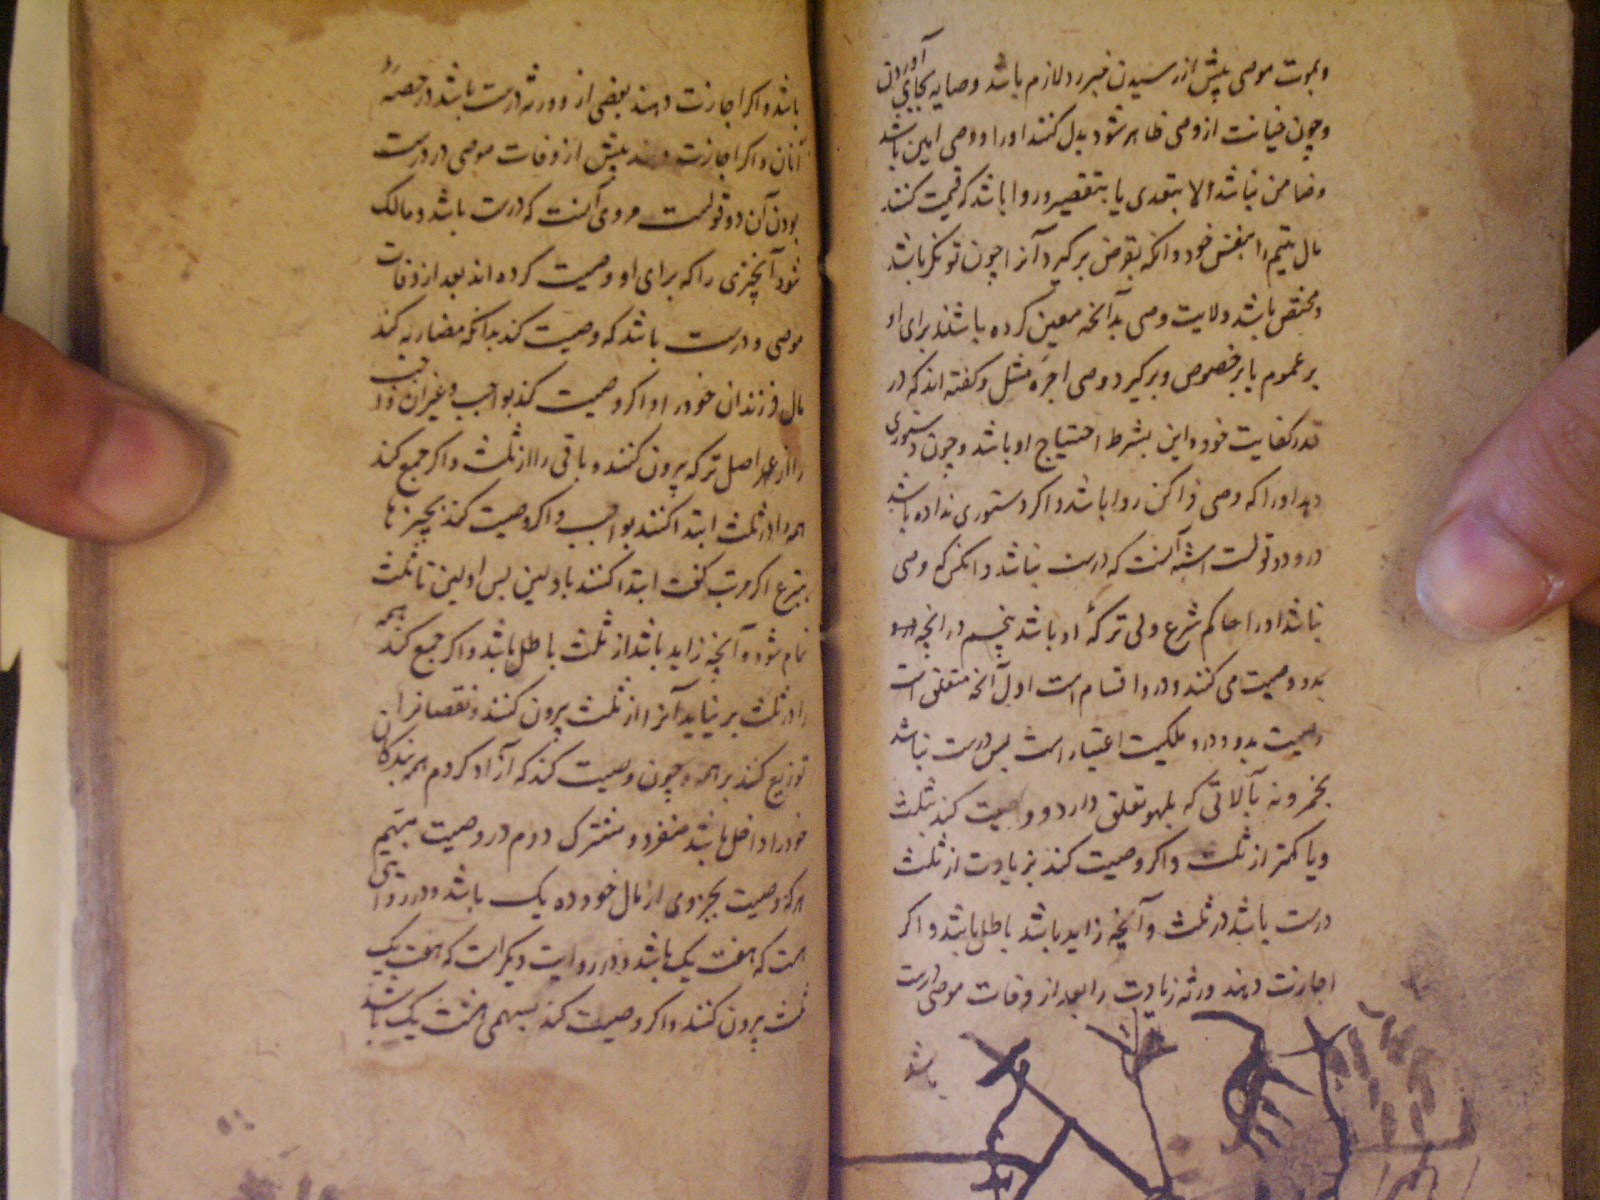 و بموت موصی پیش از رسیدن خبر رد لازم باشد وصایه بجای آوردن
و چون خیانت از وصی ظاهر شود بدل کنند او را و وصی امین باشد
و ضامن نباشد الا بتعدی یا بتقصیر و روا باشد که قیمت کنند
مال یتیم را بنفس خود و آنکه بقرض برگیرد آنرا چون توانگر باشد
و مختص باشد ولایت وصی بدآنچه معین کرده باشند برای او
بر عموم یا بر خصوص و برگیرد وصی اجره مثل و گفته اند که در
قدر کفایت خود و این بشرط احتیاج او باشد و چون دستوری
دهد او را که وصی فراکن روا باشد و اگر دستوری نداده باشد
درو دو قولست اشبه آنست که درست نباشد و انکس که وصی
نباشد او را حاکم شرع ولی ترکهٔ او باشد پنجم در آنچه
بدو وصیت می کنند و درو اقسام است اول آنچه متعلق است
وصیت بدو و درو ملکیت اعتبار است پس درست نباشد
بخمر و نه بآلاتی که بلهو تعلق دارد و وصیت کند بثلث
و یا کمتر از ثلث و اگر وصیت کند بزیادت از ثلث
درست باشد در ثلث و آنچه زاید باشد باطل باشد و اگر
اجازت دهند ورثه زیادت را بعد از وفات موصی درست
باشد
باشد و اگر اجازت دهند بعضی از ورثه درست باشد در حصه
آنان و اگر اجازت دهند پیش از وفات موصی در درست
بودن آن دو قولست مروی آنست که درست باشد و مالک
شود آنچیزی را که برای او وصیت کرده اند بعد از وفات
موصی و درست باشد که وصیت کند بدانکه مضاربه کند
مال فرزندان خود را و اگر وصیت کند بواجب و غیر آن واجب
را از اصل ترکه بیرون کنند و باقی را از ثلث و اگر جمع کند
همه را در ثلث ابتدا کنند بواجب و اگر وصیت کند بچیزها
بتبرع اگر مرتب گفت ابتدا کنند باولین پس اولین تا ثلث
تمام شود و آنچه زاید باشد از ثلث باطل باشد و اگر جمع کند همه
را در ثلث بر نیاید آنرا از ثلث بیرون کنند و نقصانرا
توزیع کنند بر همه و چون وصیت کند که آزاد کردم همه بندگان
خود را داخل باشد منفرد و مشترک دوم در وصیت مبهم
هر که وصیت بجزوی از مال خود ده یک باشد و در روایتی
است که هفت یک باشد و در روایت دیگر است که هفت یک
ثلث بیرون کنند و اگر وصیت کند بسهمی هشت یک باشد